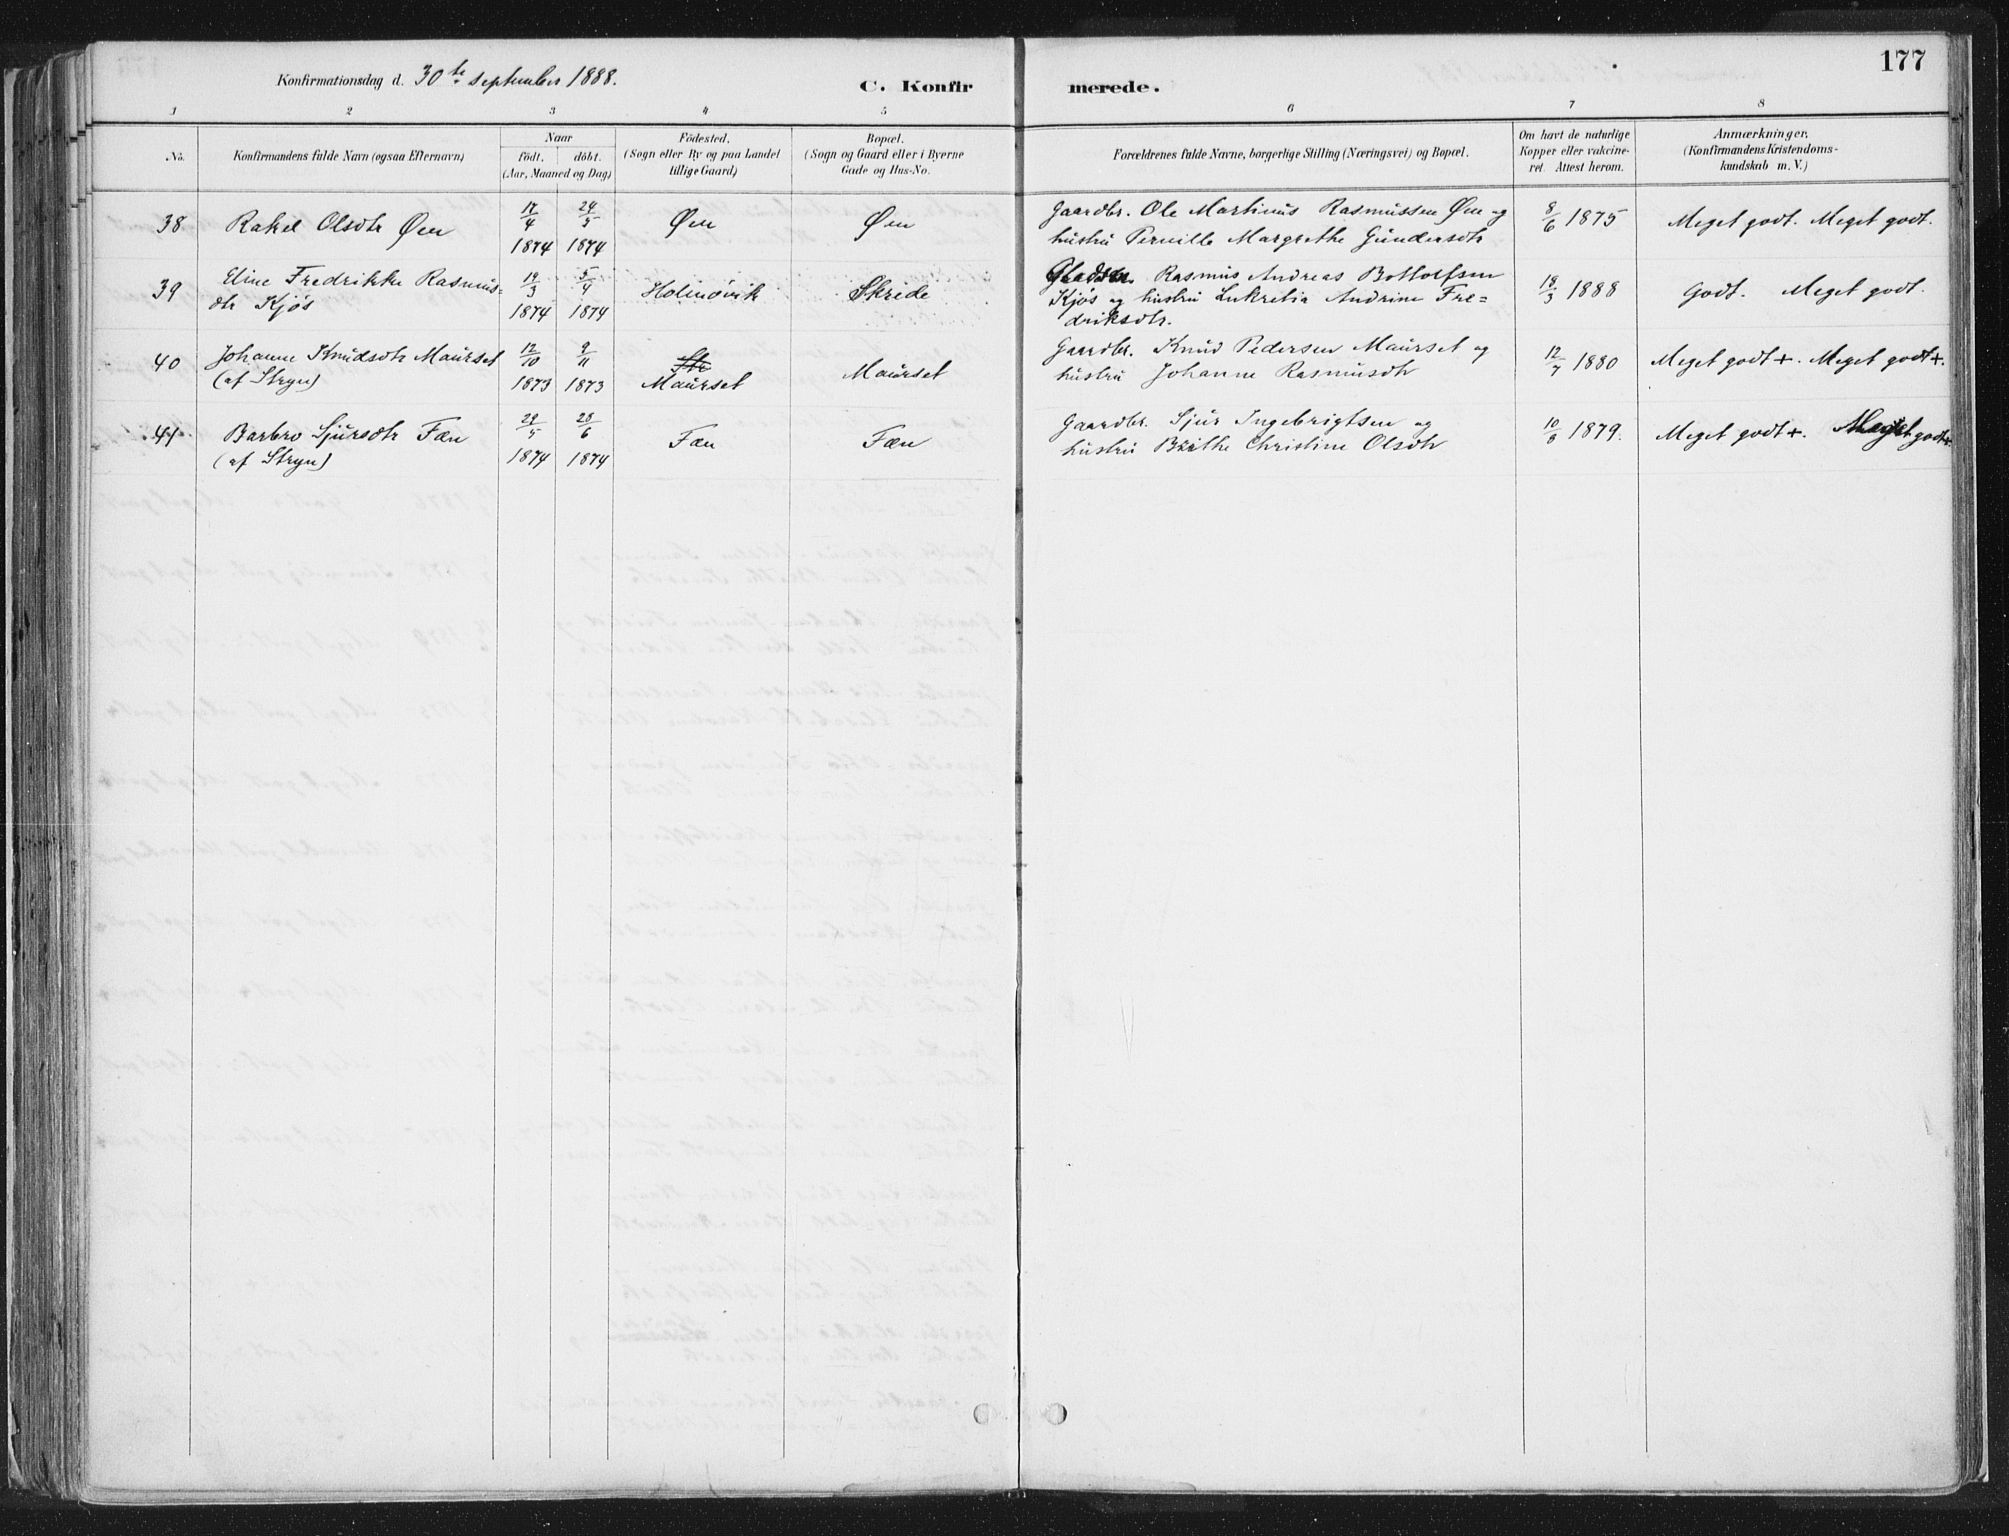 177
Konfirmationsdag d. 30te september 1888.
C. Konfirmerede.
1 2 3 4 5 6 7 8
No. Konfirmandens fulde Navn (ogsaa Efternavn)
Naar
födt. döbt.
(Aar, Maaned og Dag)
Födested.
(Sogn eller By og paa Landet
tillige Gaard)
Bopæl.
(Sogn og Gaard eller i Byerne
Gade og Hus-No.
Forældrenes fulde Navne, borgerlige Stilling (Næringsvei) og Bopæl.
Om havt de naturlige
Kopper eller vakcine-
ret. Attest herom.
Anmærkninger.
(Konfirmandens Kristendoms-
kundskab m. V.)
38 Rakel Olsdtr Øen 17/4 1874 24/5 1874 Øen Øen
Gaardbr. Ole Martinus Rasmussen Øen og
hustru Pernille Margrethe Gundersdtr
8/6 1875 Meget godt. Meget godt.
39 Eline Fredrikke Rasmus-
dtr Kjös 19/3 1874 5/4 1874 Holmövik Skride
Rasmus Andreas Bottolfsen
Kjös og hustru Lukretia Andrine Fre-
driksdtr.
18/3 1888 Godt. Meget godt.
40 Johanne Knudsdtr Maurset
(af Stryn) 12/10 1873 9/11 1873 Str Maurset Maurset
Gaardbr. Knud Pedersen Maurset og
hustru Johanne Rasmusdtr
12/7 1880 Meget godt +. Meget godt +.
41 Barbro Sjursdtr Fæn
(af Stryn) 29/5 1874 28/6 1874 Fæn Fæn
Gaardbr. Sjur Ingebrigtsen og
hustru Brithe Christine Olsdtr
10/8 1879. Meget godt +. Meget godt +.